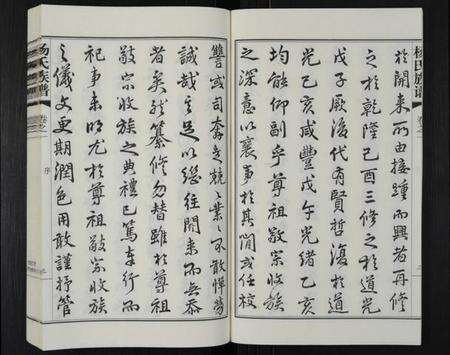 杨氏族谱
於開來而由接踵而興者再修
之於乾隆己酉三修之於道光
戊子厥後代有賢哲復於道
光己亥咸豐戊午光緒己亥
均能仰副乎尊祖敬宗收族
之深意以襄事於其間或任校
讐或司奔走兢兢業業不敢憚勞
誠哉其足以繼往開來而無忝
者矣然纂修勿替雖於尊祖
敬宗收族之典禮已篤奉行而
祀事未明尤於尊祖敬宗收族
之儀文更期潤色用敢謹抒管
杨氏族譜
卷之
序